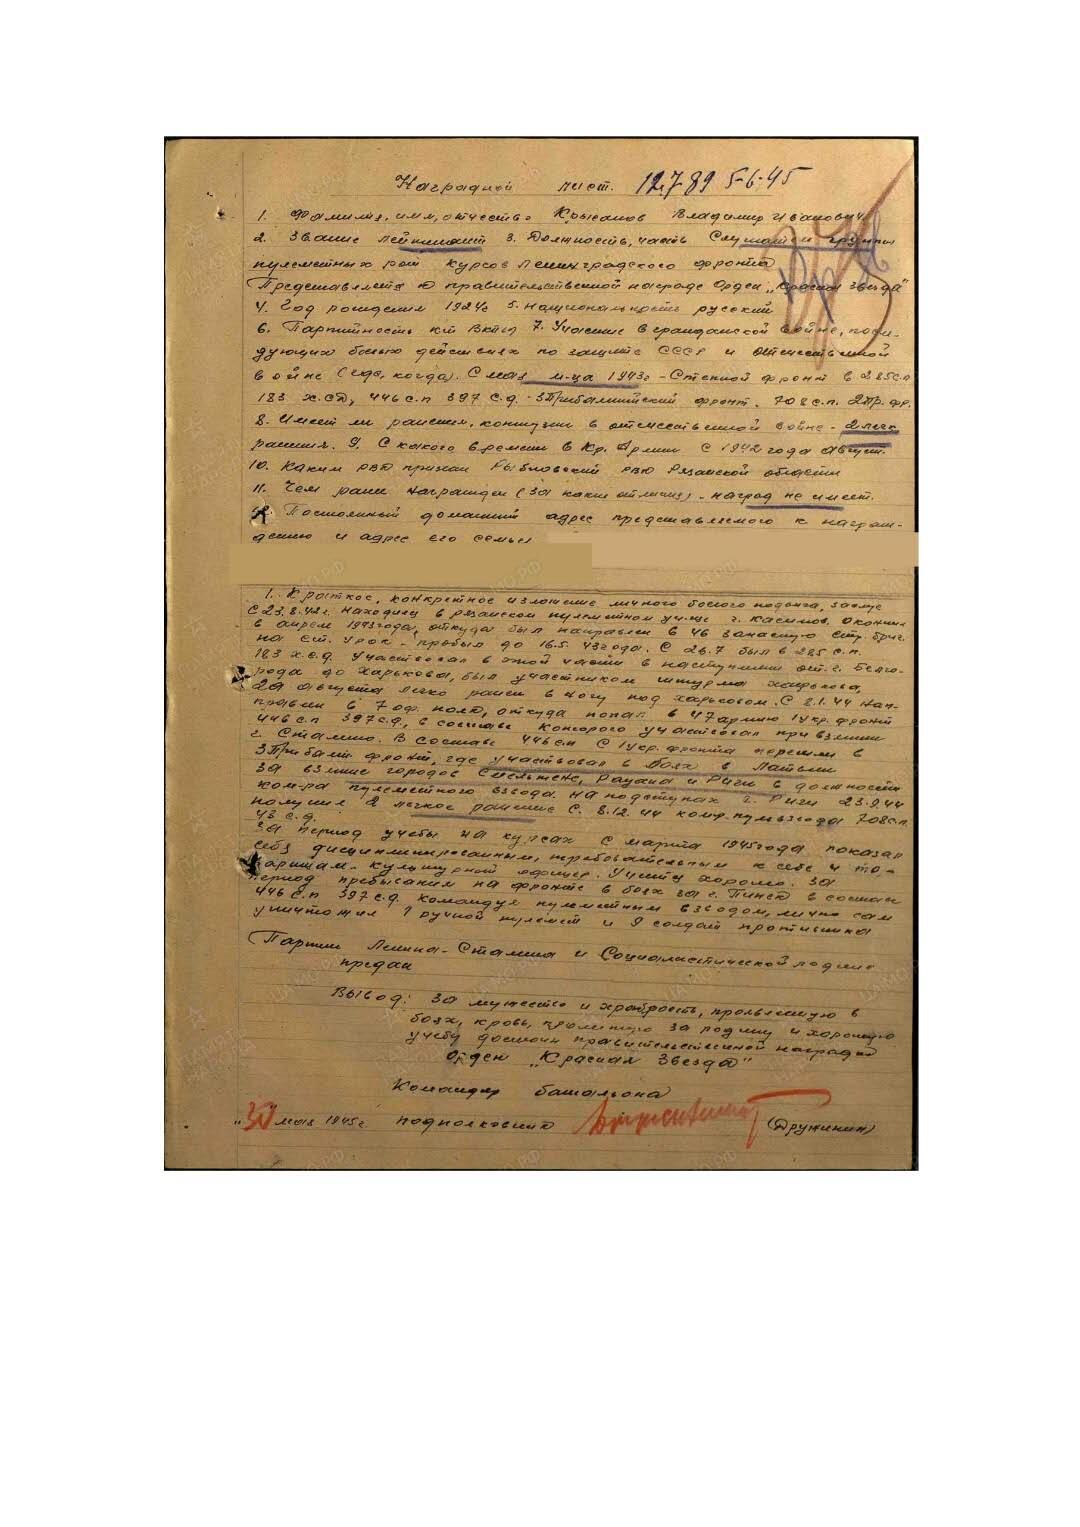 Наградной лист. 12789 5-6-45
1. Фамилия, имя, отчество Крысанов Владимир Иванович
2. Звание лейтенант 3. Должность, часть Слушатель группы
пулеметных рот курсов Ленинградского фронта
Представляется к правительственной награде Орден „Красная звезда"
4. Год рождения 1924г 5. Национальность русский
6. Партийность к/т ВКП(б) 7. Участие в гражданской войне, после-
дующих боевых действиях по защите СССР и отечественной
войне (где, когда). С мая м-ца 1943г - Степной фронт в 285 с.п
183 х.сд, 446 с.п 397 с.д. - 3 Прибалтийский фронт. 708 с.п. 2 Пр. фр.
8. Имеет ли ранения, контузии в отечественной войне - 2 легк.
ранения. 9. С какого времени в Кр. Армии с 1942 года август.
10. Каким РВК призван Рыбновский РВК Рязанской области
11. Чем ранее награжден (за какие отличия) - наград не имеет.
12. Постоянный домашний адрес представляемого к награж-
дению и адрес его семьи
1. Краткое, конкретное изложение личного боевого подвига, заслуг
С 23.8.42г. находился в рязанском пулеметном уч-ще г. Касимов. Окончил
в апреле 1943 года, откуда был направлен в 46 запасную стр. бриг.
на ст. Урок - пробыл до 16.5. 43 года. С 26.7 был в 285 с.п.
183 х.с.д. Участвовал в этой части в наступлении от г. Белго-
рода до Харькова, был участником штурма Харькова,
22 августа легко ранен в ногу под Харьковом. С 2.1.44 нап-
равлен в 7 оф. полк, откуда попал в 47 армию 1 укр. фронт
446 с.п 397 с.д., в составе которого участвовал при взятии
г. Сталино. В составе 446 сп с 1 укр. фронта перешли в
3 Прибалт. фронт, где участвовал в боях в Латвии
за взятие городов Смельтене, Раузна и Риги в должности
ком-ра пулеметного взвода. На подступах г. Риги 23.9.44
получил 2 легкое ранение С. 8.12.44 комр. пульвзвода 708 с.п.
43 с.д.
За период учебы на курсах с марта 1945 года показал
себя дисциплинированным, требовательным к себе и то-
варищам. Культурный офицер. Учится хорошо. За
период пребывания на фронте в боях за г. Пинск в составе
446 с.п 397 с.д. командуя пулеметным взводом, лично сам
уничтожил 1 ручной пулемет и 9 солдат противника
Партии Ленина-Сталина и Социалистической родине
предан
Вывод: за мужество и храбрость, проявленную в
боях, кровь, пролитую за родину и хорошую
учебу достоин правительственной награды
Орден „Красная Звезда"
Командир батальона
„30" мая 1945г подполковник (Дружинин)